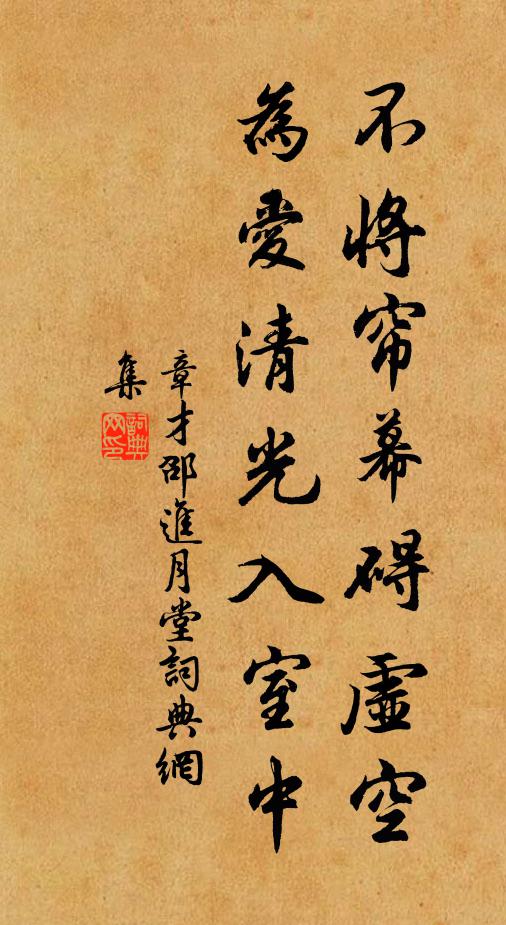 不將帘幕碍虛空
為愛清光入室中
章才邵進月堂詞典網
集
詞典
网印